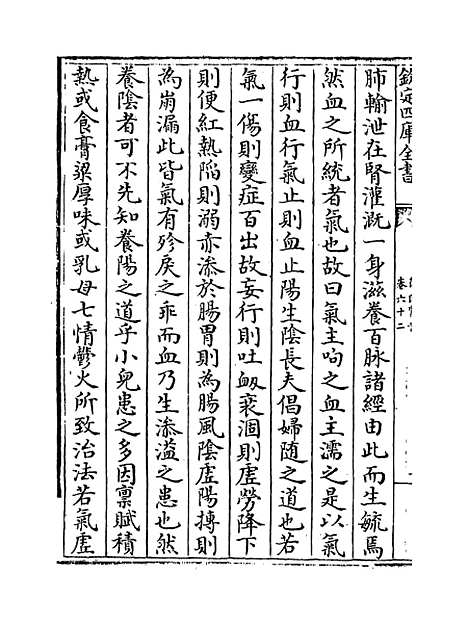 欽定四庫全書
卷六十二
肺輸泄在腎灌溉一身滋養百脉諸經由此而生毓焉
然血之所統者氣也故曰氣主呴之血主濡之是以氣
行則血行氣止則血止陽生陰長夫倡婦隨之道也若
氣一傷則變症百出故妄行則吐衂衰涸則虛勞降下
則便紅熱陷則溺赤滲於腸胃則為腸風陰虛陽搏則
為崩漏此皆氣有殄戾之乖而血乃生滲溢之患也然
養陰者可不先知養陽之道乎小兒患之多因禀賦積
熱或食膏粱厚味或乳母七情鬱火所致治法若氣虛